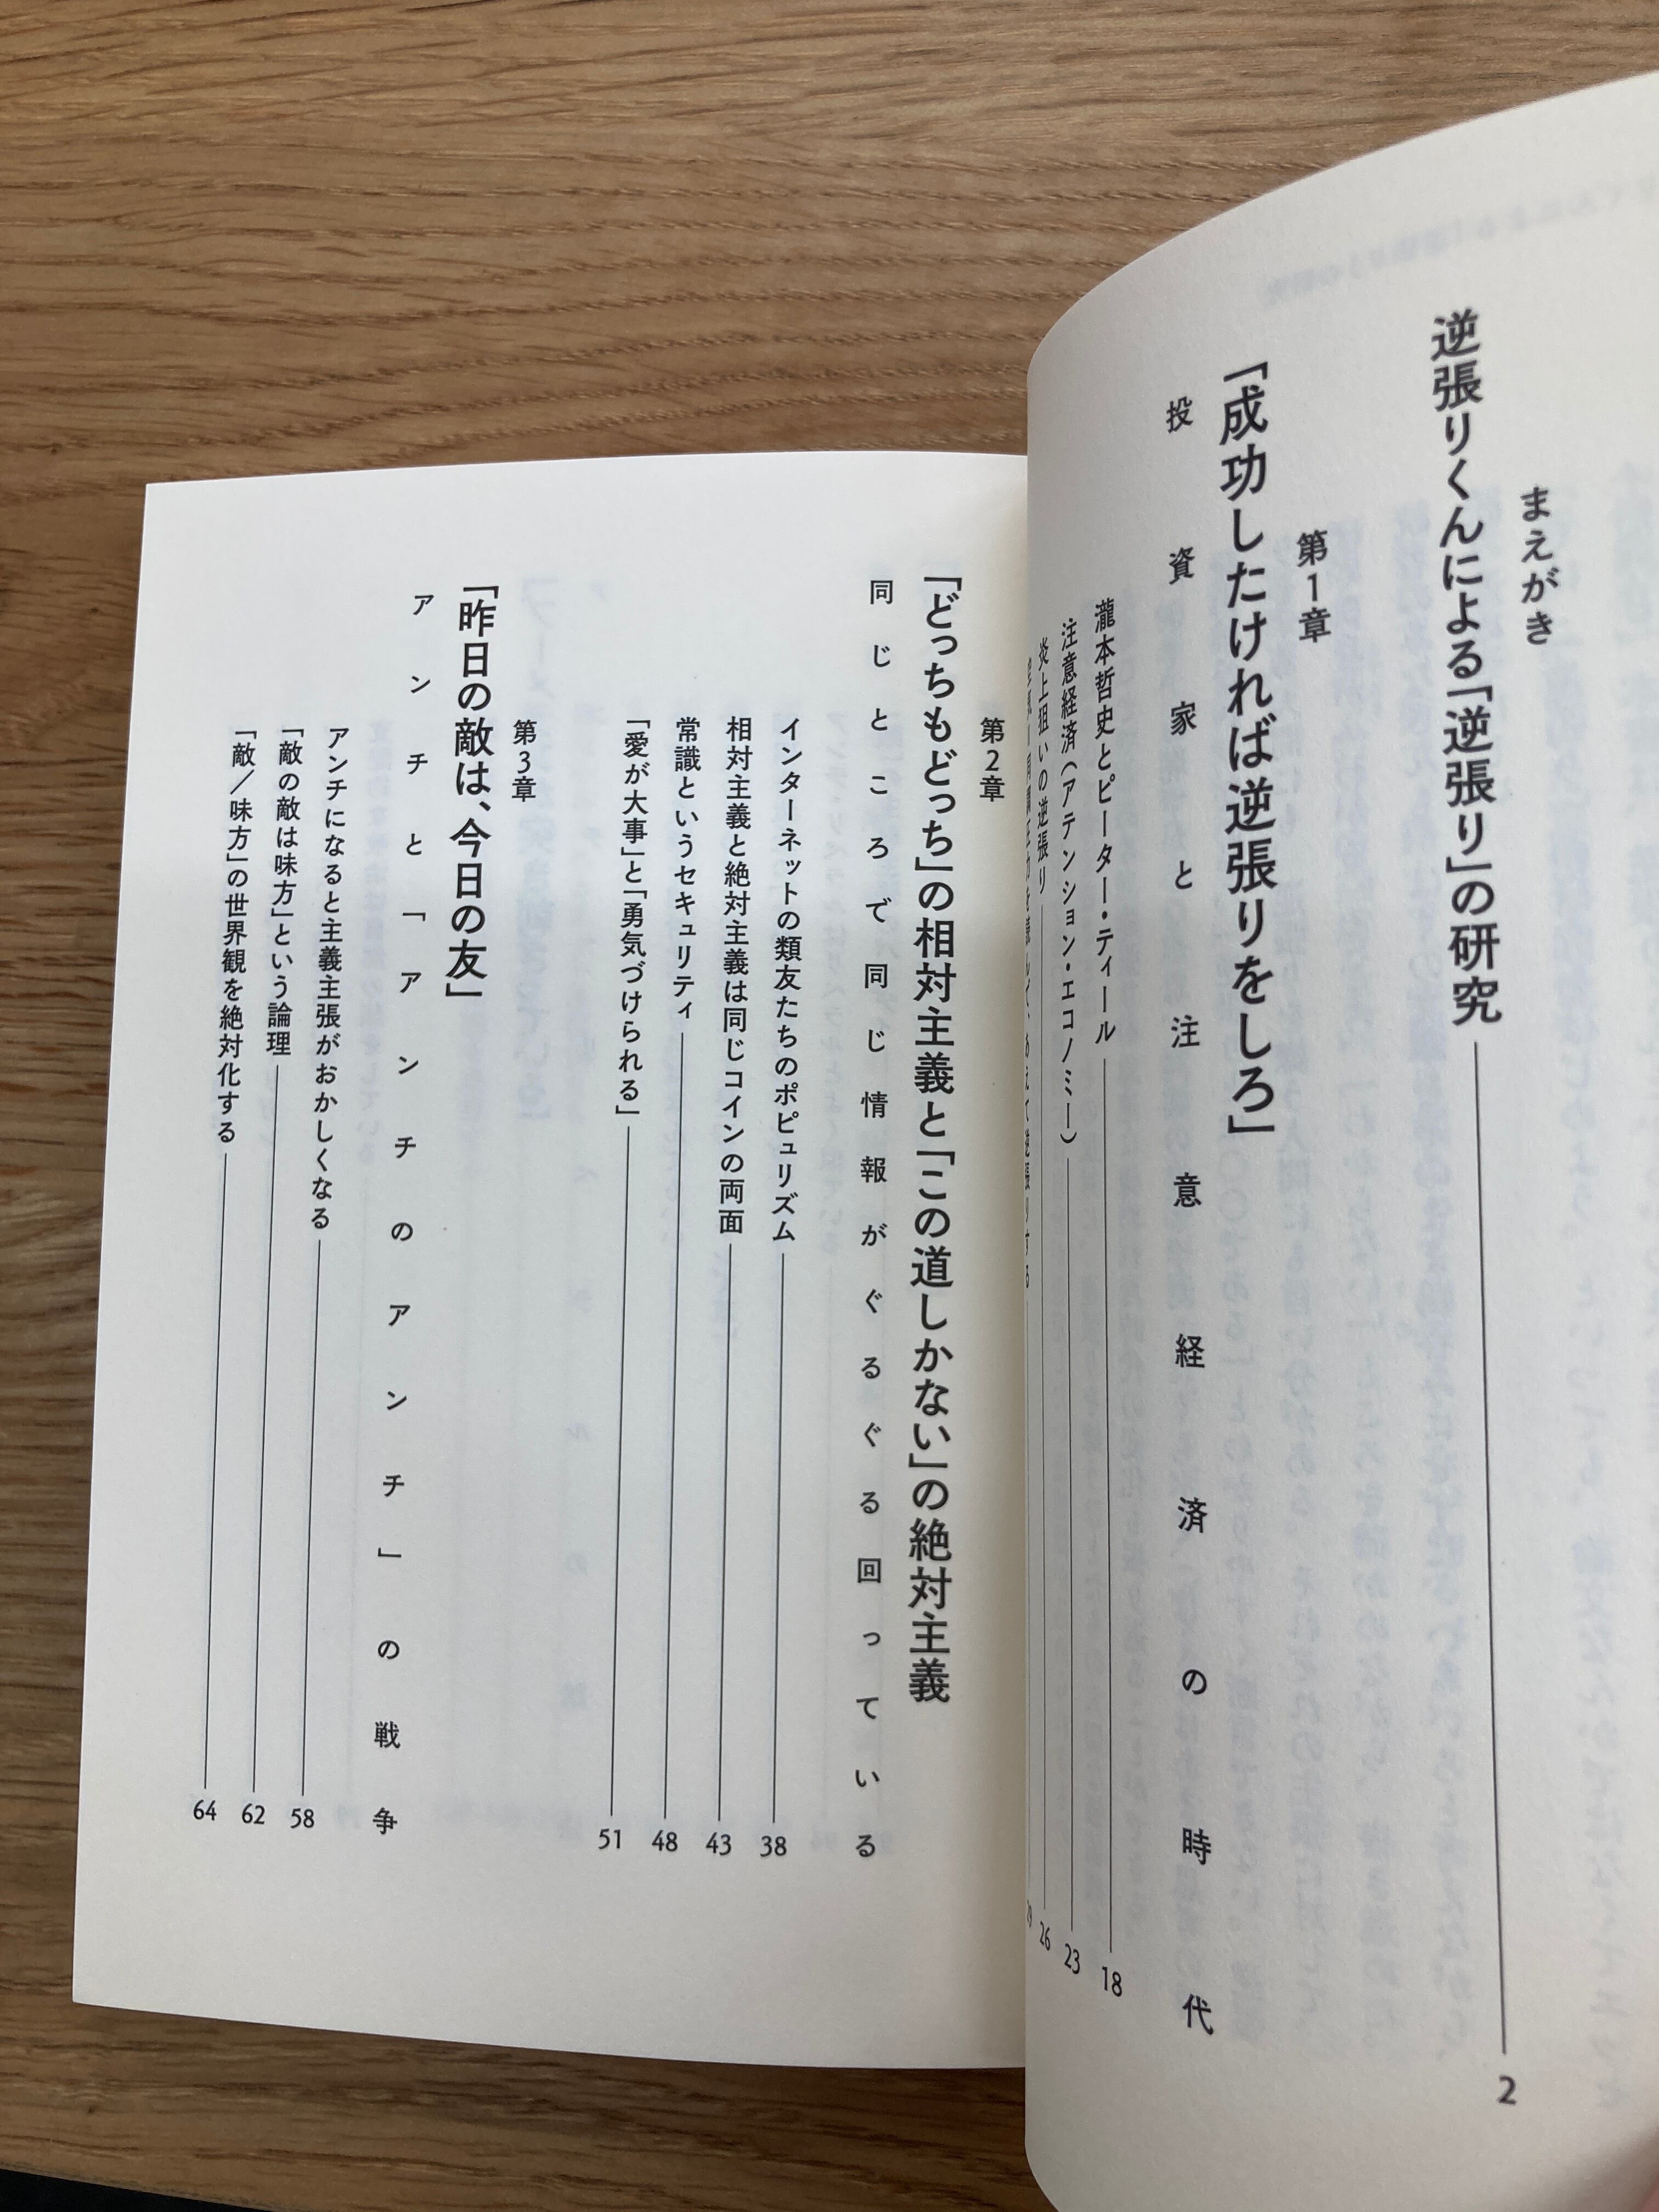 まえがき
逆張りくんによる「逆張り」の研究 2
第1章
「成功したければ逆張りをしろ」
投資家と注意経済の時代
瀧本哲史とピーター・ティール 18
注意経済（アテンション・エコノミー） 23
炎上狙いの逆張り 26
あえて逆張りする
第2章
「どっちもどっち」の相対主義と「この道しかない」の絶対主義
同じところで同じ情報がぐるぐる回っている
インターネットの類友たちのポピュリズム 38
相対主義と絶対主義は同じコインの両面 43
常識というセキュリティ 48
「愛が大事」と「勇気づけられる」 51
第3章
「昨日の敵は、今日の友」
アンチと「アンチのアンチ」の戦争
アンチになると主義主張がおかしくなる 58
「敵の敵は味方」という論理 62
「敵／味方」の世界観を絶対化する 64